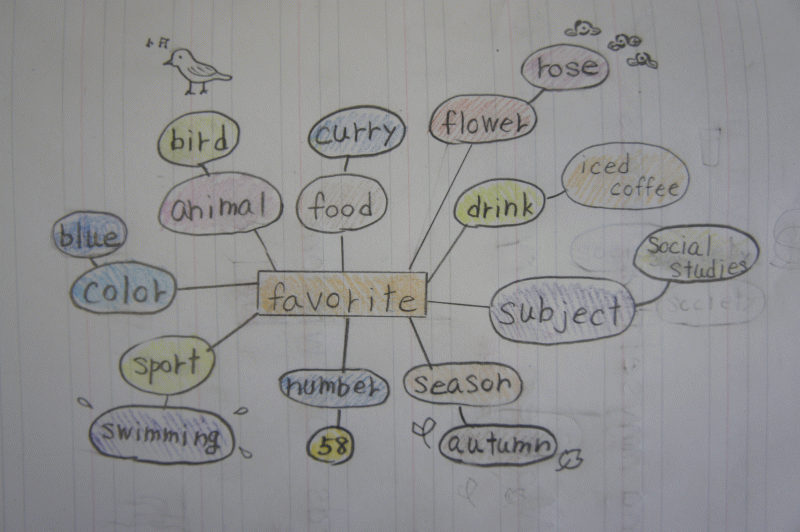 rose
curry
flower
bird
iced
coffee
animal
food
drink
blue
Social
studies
color
favorite
subject
society
sport
number
season
swimming
58
autumn